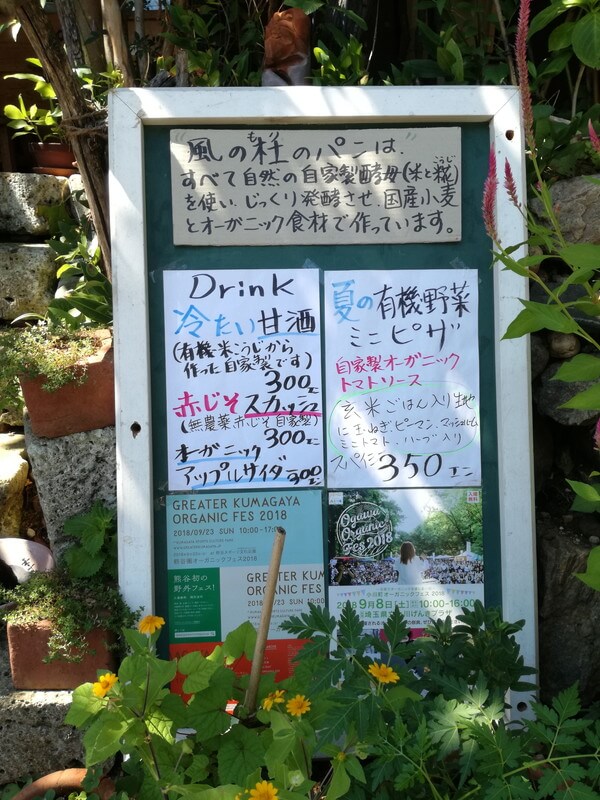 "風の杜のパンは、"
もり
すべて自然の自家製酵母(米と糀)
こうじ
を使い、じっくり発酵させ、国産小麦
とオーガニック食材で作っています。
Drink
冷たい甘酒
(有機米こうじから
作った自家製です)
300エン
赤じそスカッシュ
(無農薬赤じそ自家製)
300エン
オーガニック
アップルサイダー 300エン
夏の有機野菜
ミニピザ
自家製オーガニック
トマトソース
玄米ごはん入り生地
ミニトマト・ハーブ入り
350エン
GREATER KUMAGAYA
ORGANIC FES 2018
2018/09/23 SUN 10:00-17:00
熊谷初の
野外フェス!
GREATER KUM
ORGANIC FES
2018/09/23 SUN 10:
入場
無料
Ogawa
Organic
Fes 2018
小川町オーガニックフェス 2018
2018 9月8日(土) 10:00-16:00